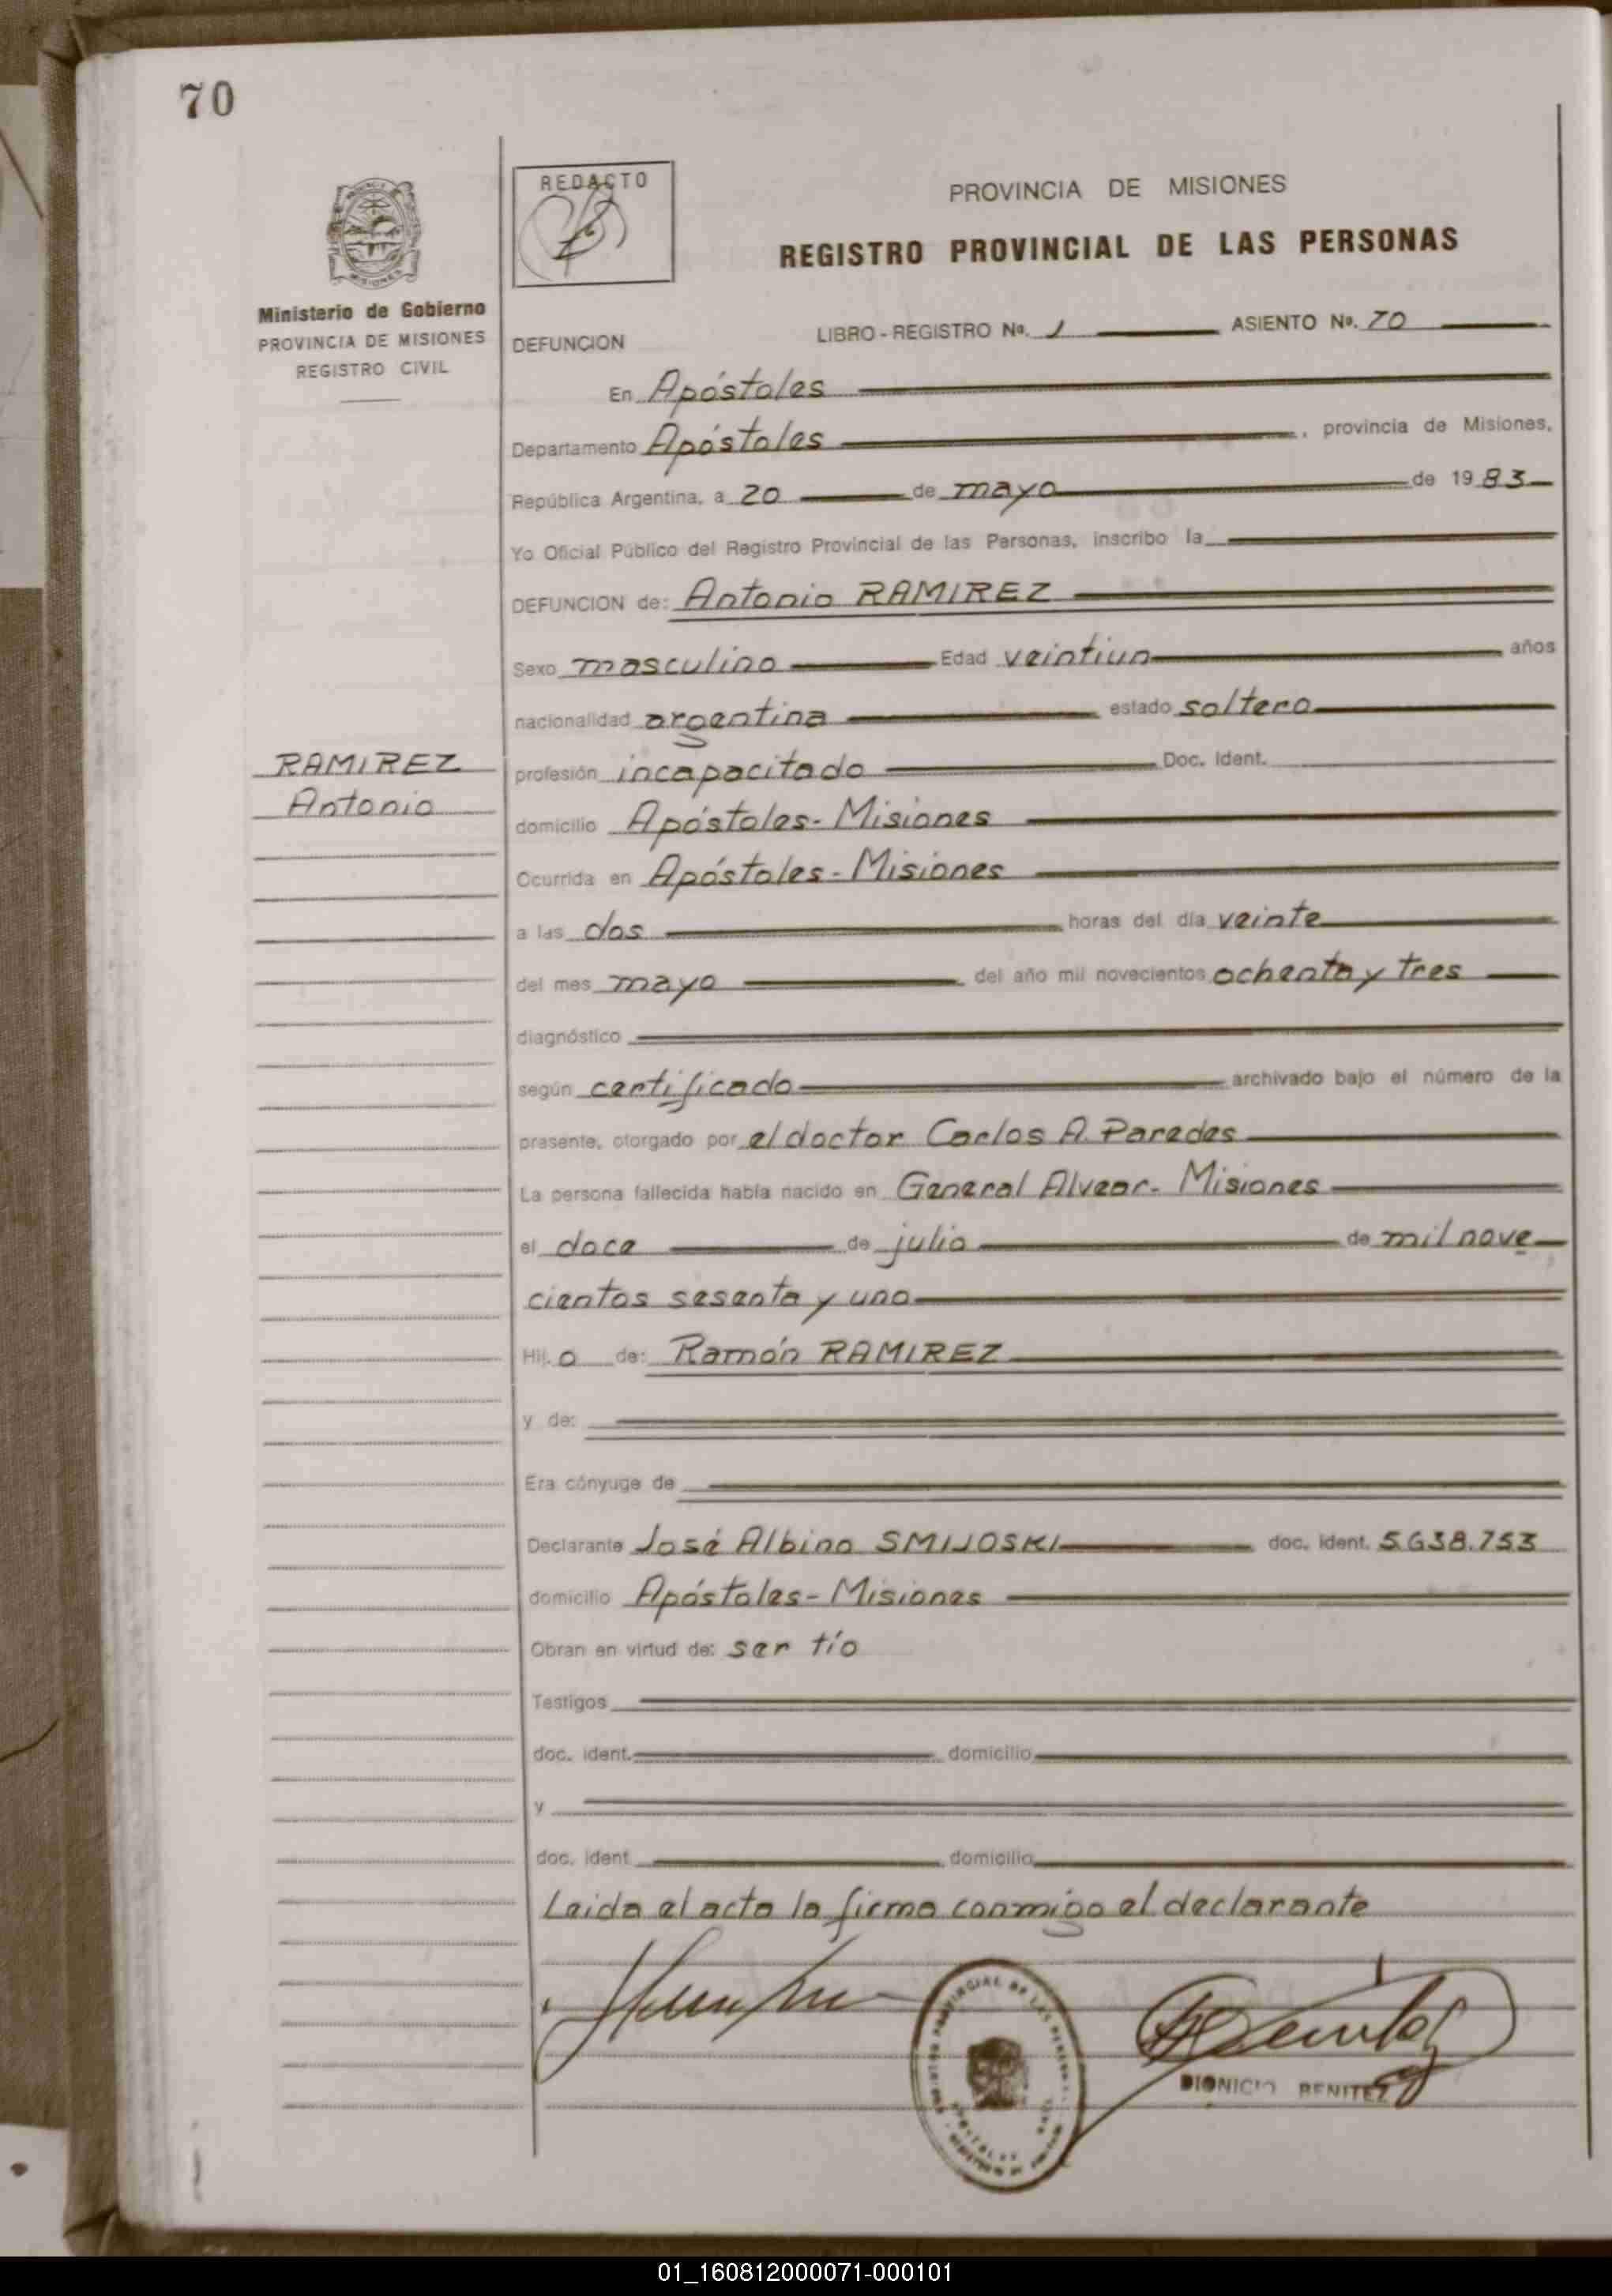 70
Ministerio de Gobierno
PROVINCIA DE MISIONES
REGISTRO CIVIL
REDACTO
PROVINCIA DE MISIONES
REGISTRO PROVINCIAL DE LAS PERSONAS
DEFUNCION LIBRO - REGISTRO No. 1 ASIENTO No. 70
En Apóstoles
Departamento Apóstoles, provincia de Misiones,
República Argentina, a 20 de mayo de 1983
Yo Oficial Público del Registro Provincial de las Personas, inscribo la
DEFUNCION de: Antonio RAMIREZ
Sexo masculino Edad veintiun años
nacionalidad argentina estado soltero
RAMIREZ
Antonio
profesión incapacitado Doc. Ident.
domicilio Apóstoles - Misiones
Ocurrida en Apóstoles - Misiones
a las dos horas del día veinte
del mes mayo del año mil novecientos ochenta y tres
diagnóstico
según certificado archivado bajo el número de la
presente, otorgado por el doctor Carlos A. Paredes
La persona fallecida había nacido en General Alvear - Misiones
el doce de julio de mil nove
cientos sesenta y uno
Hij o de: Ramón RAMIREZ
y de:
Era cónyuge de
Declarante José Albino SMIJOSKI doc. ident. 5.638.753
domicilio Apóstoles - Misiones
Obran en virtud de: ser tío
Testigos
doc. ident. domicilio
y
doc. ident. domicilio
Leida el acta la firma conmigo el declarante
DIONICIO BENITEZ
01_160812000071-000101